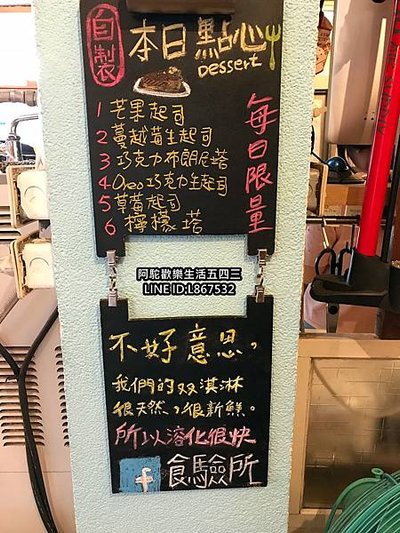 自製
本日點心
Dessert
1 芒果起司
2 蔓越莓生起司
3 巧克力布朗尼塔
4 Oreo巧克力生起司
5 草莓起司
6 檸檬塔
每日限量
阿駝歡樂生活五四三
LINE ID:L867532
不好意思,
我們的双淇淋
很天然,很新鮮。
所以溶化很快
f 食驗所